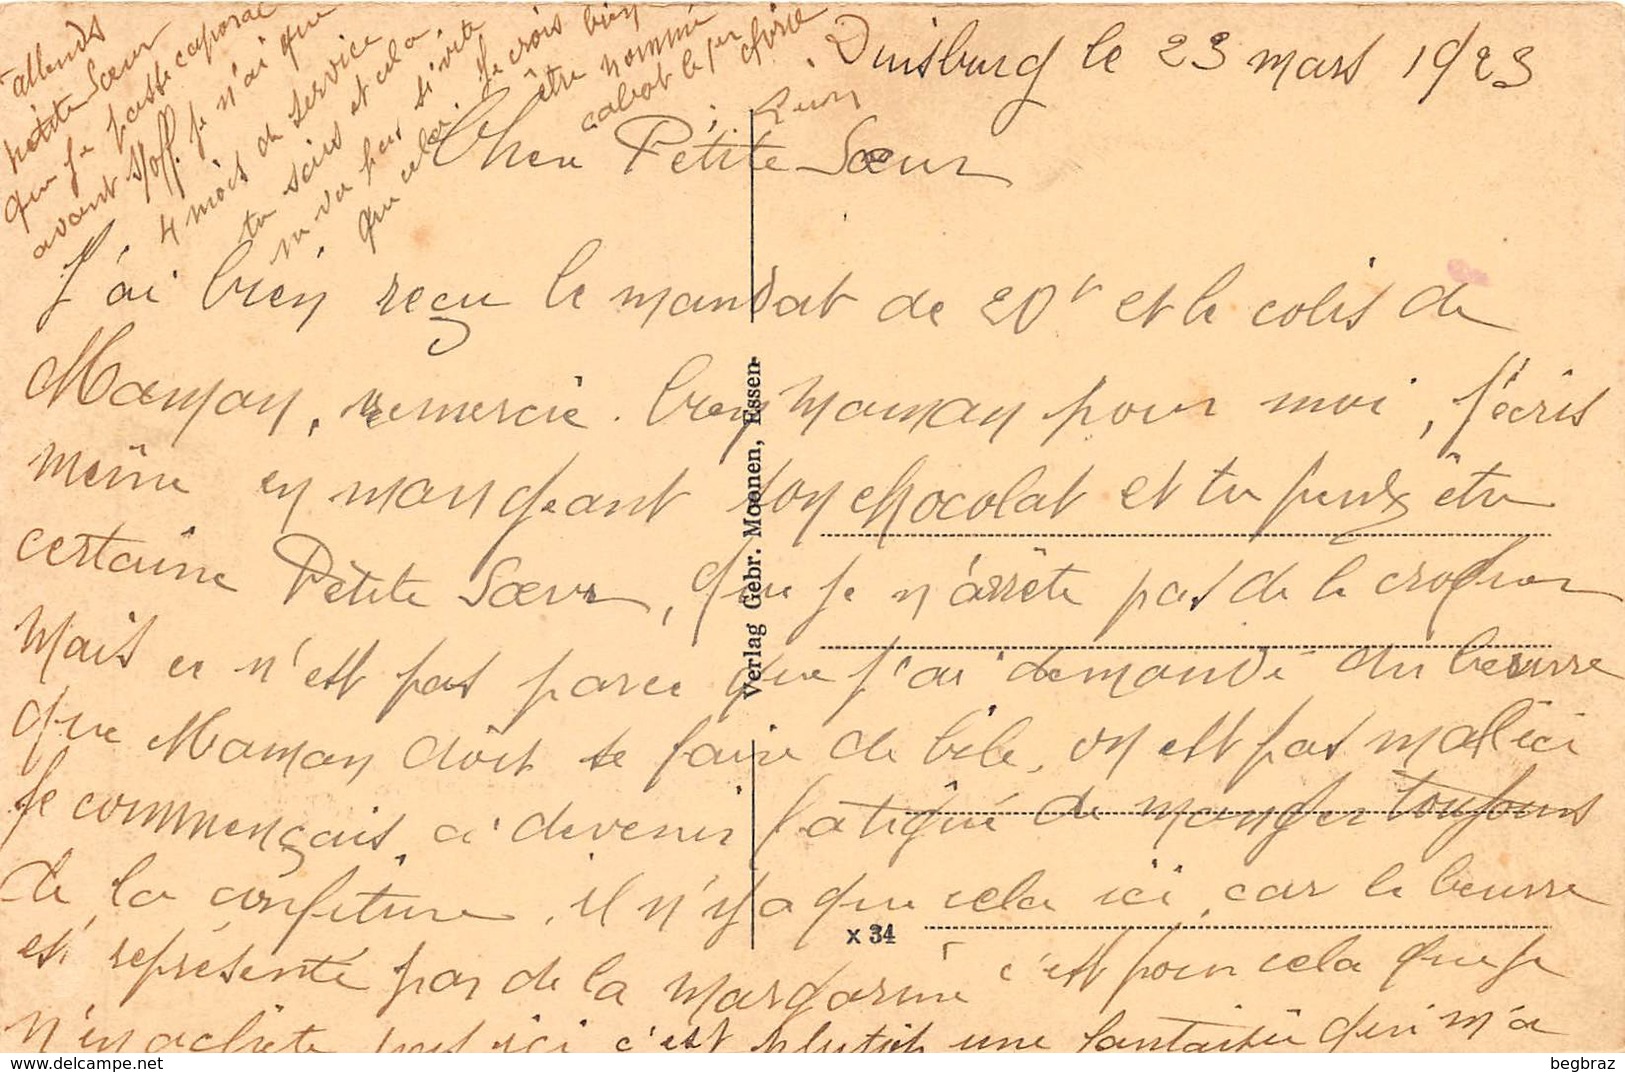 Duisburg le 23 mars 1923
Cher Pétite Sœur
J'ai bien reçu le mandat de 20f et le colis de
Maman, remercie bien Maman pour moi, j'écris
même en mangeant ton chocolat et tu peux être
certaine Pétite Sœur, que je n'arrête pas de le croquer
Mais ce n'est pas parce que j'ai demandé du beurre
que Maman doit se faire de bile, on est pas mal ici
Je commençais à devenir fatigué de manger toujours
de la confiture, il n'y a que cela ici, car le beurre
est représenté par de la margarine c'est pour cela que je
n'en achète pas ici c'est plutôt une fantaisie qui m'a
attends
pétite Sœur
que je passe caporal
avant s/off. je n'ai que
4 mois de service
tu sais et cela
ne va pas si vite
que cela. Je crois bien
être nommé
cabot le 1er Avril
Léon
Verlag Gebr. Moonen, Essen
x 34
begbraz